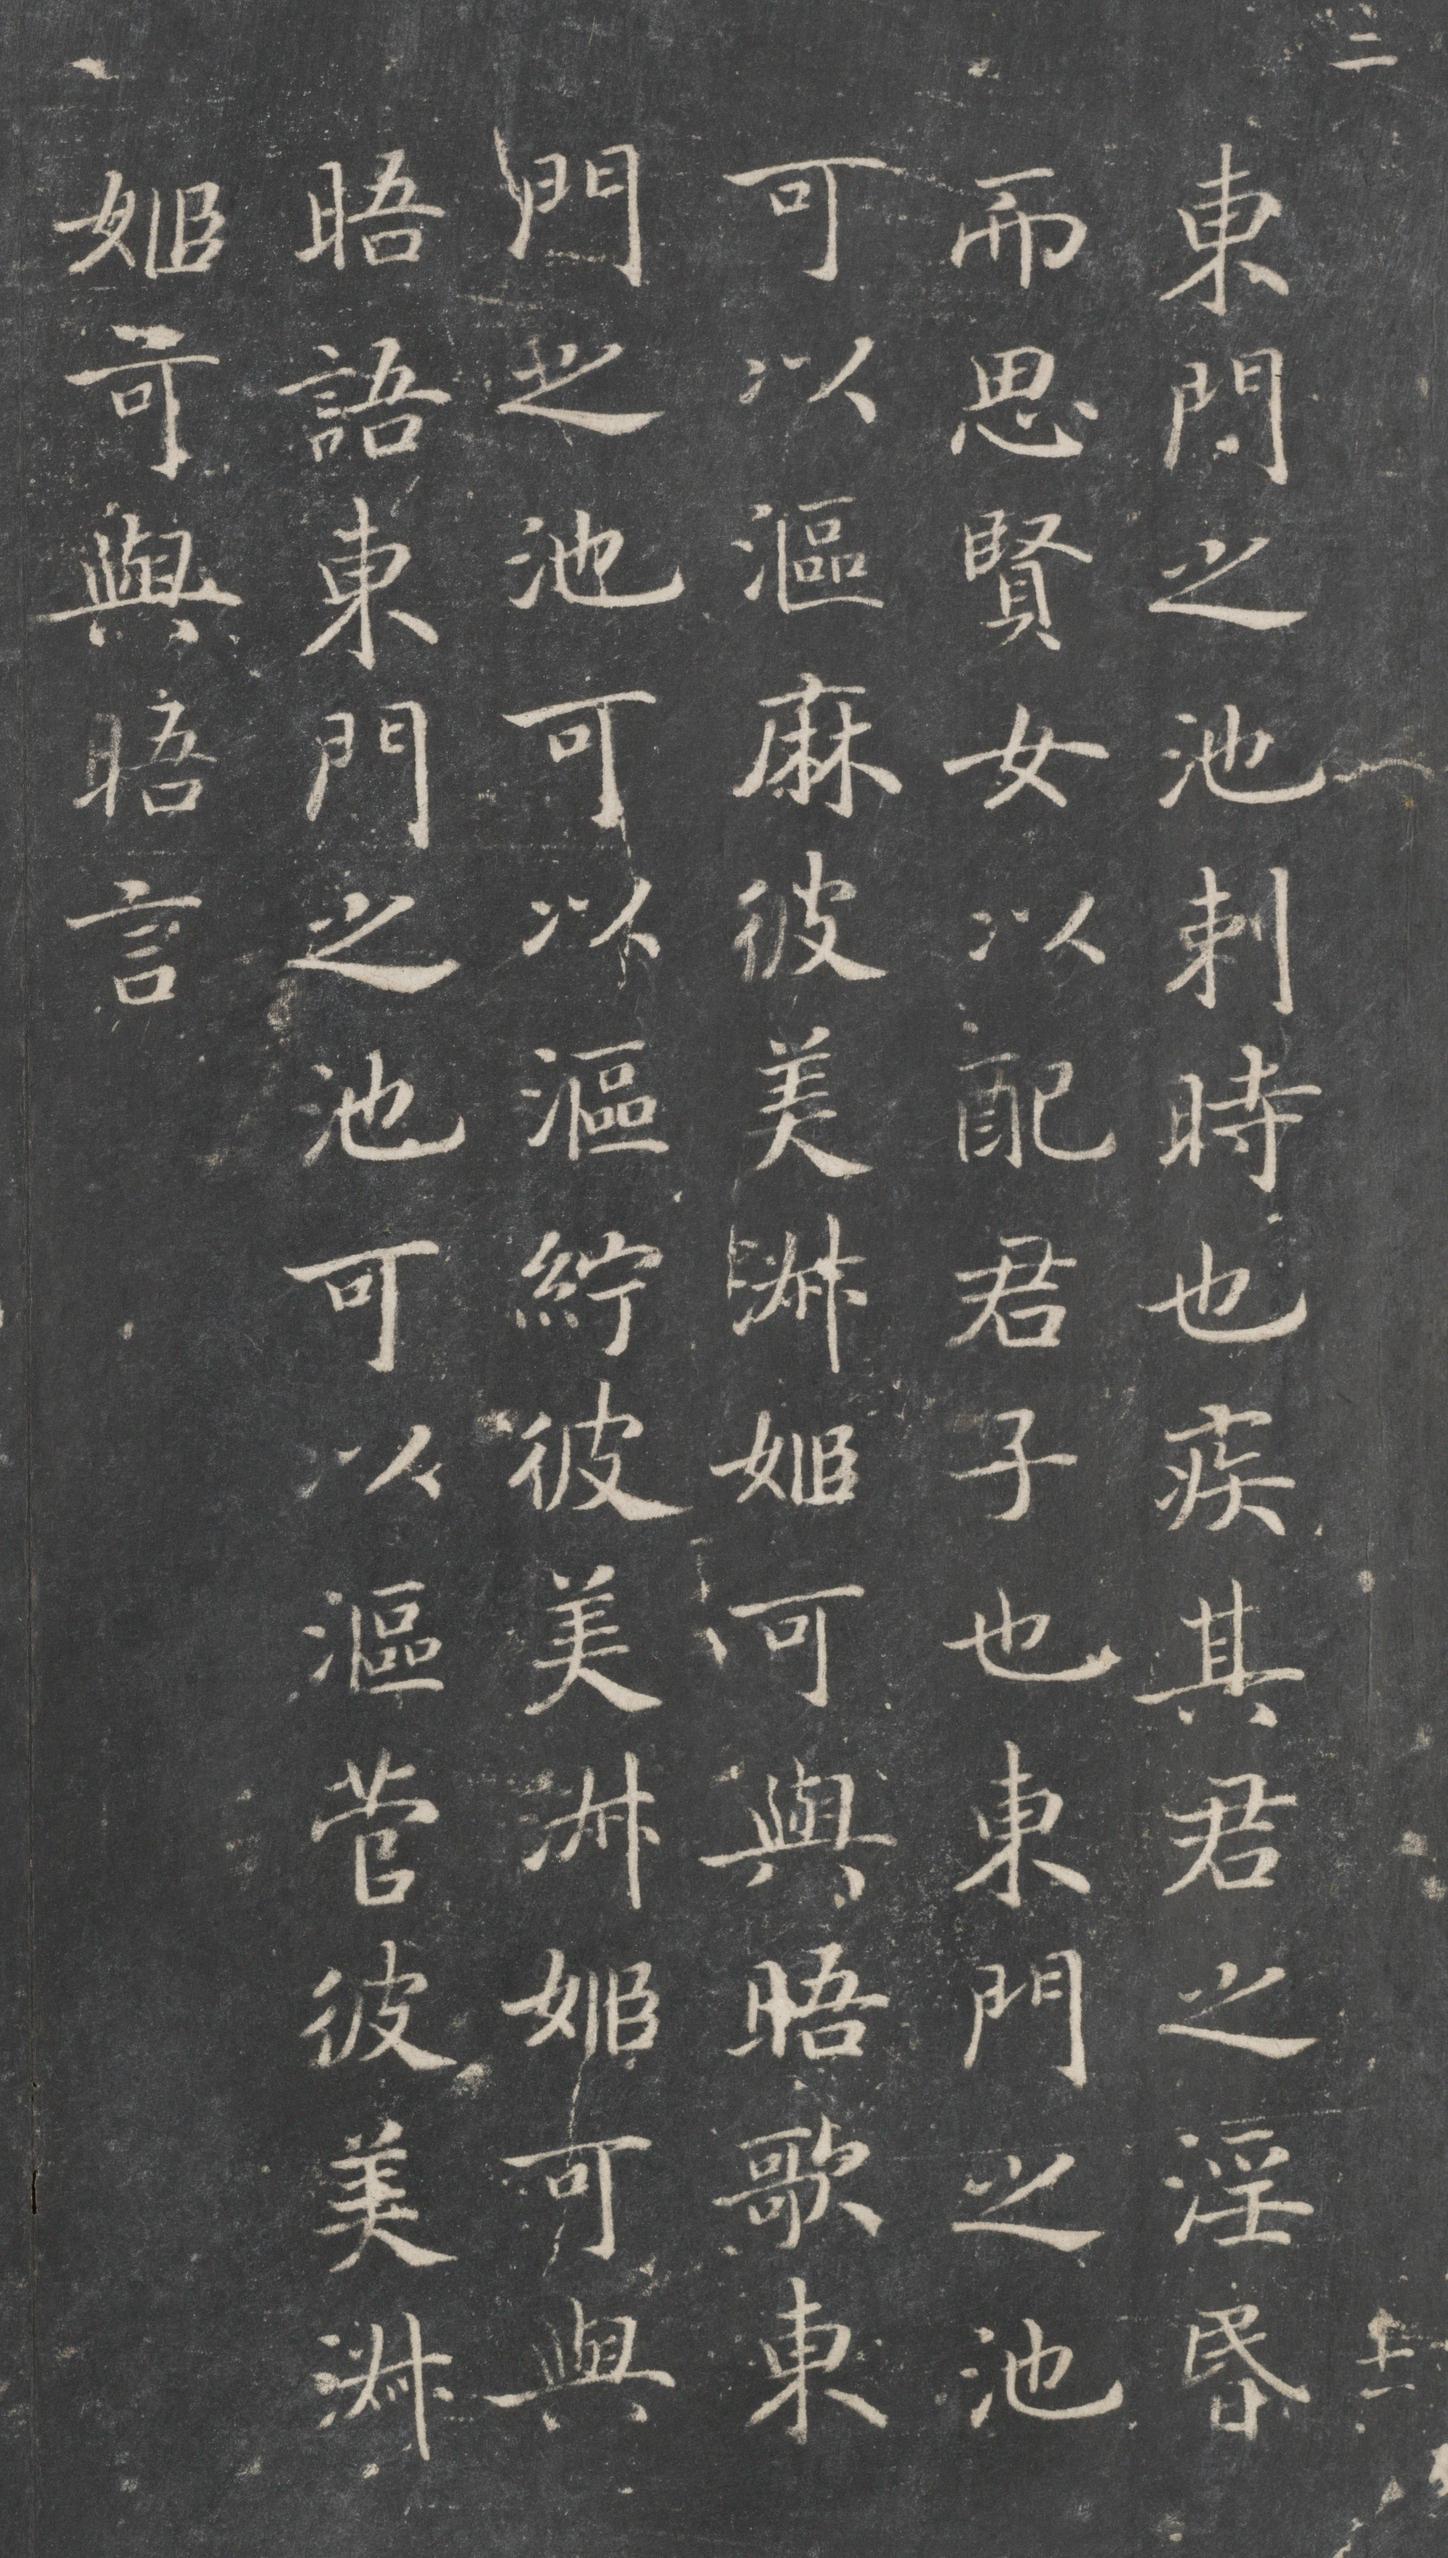 二
東門之池刺時也疾其君之淫昏
而思賢女以配君子也東門之池
可以漚麻彼美淋姬可與晤歌東
門之池可以漚紵彼美淋姬可與
晤語東門之池可以漚菅彼美淋
姬可與晤言